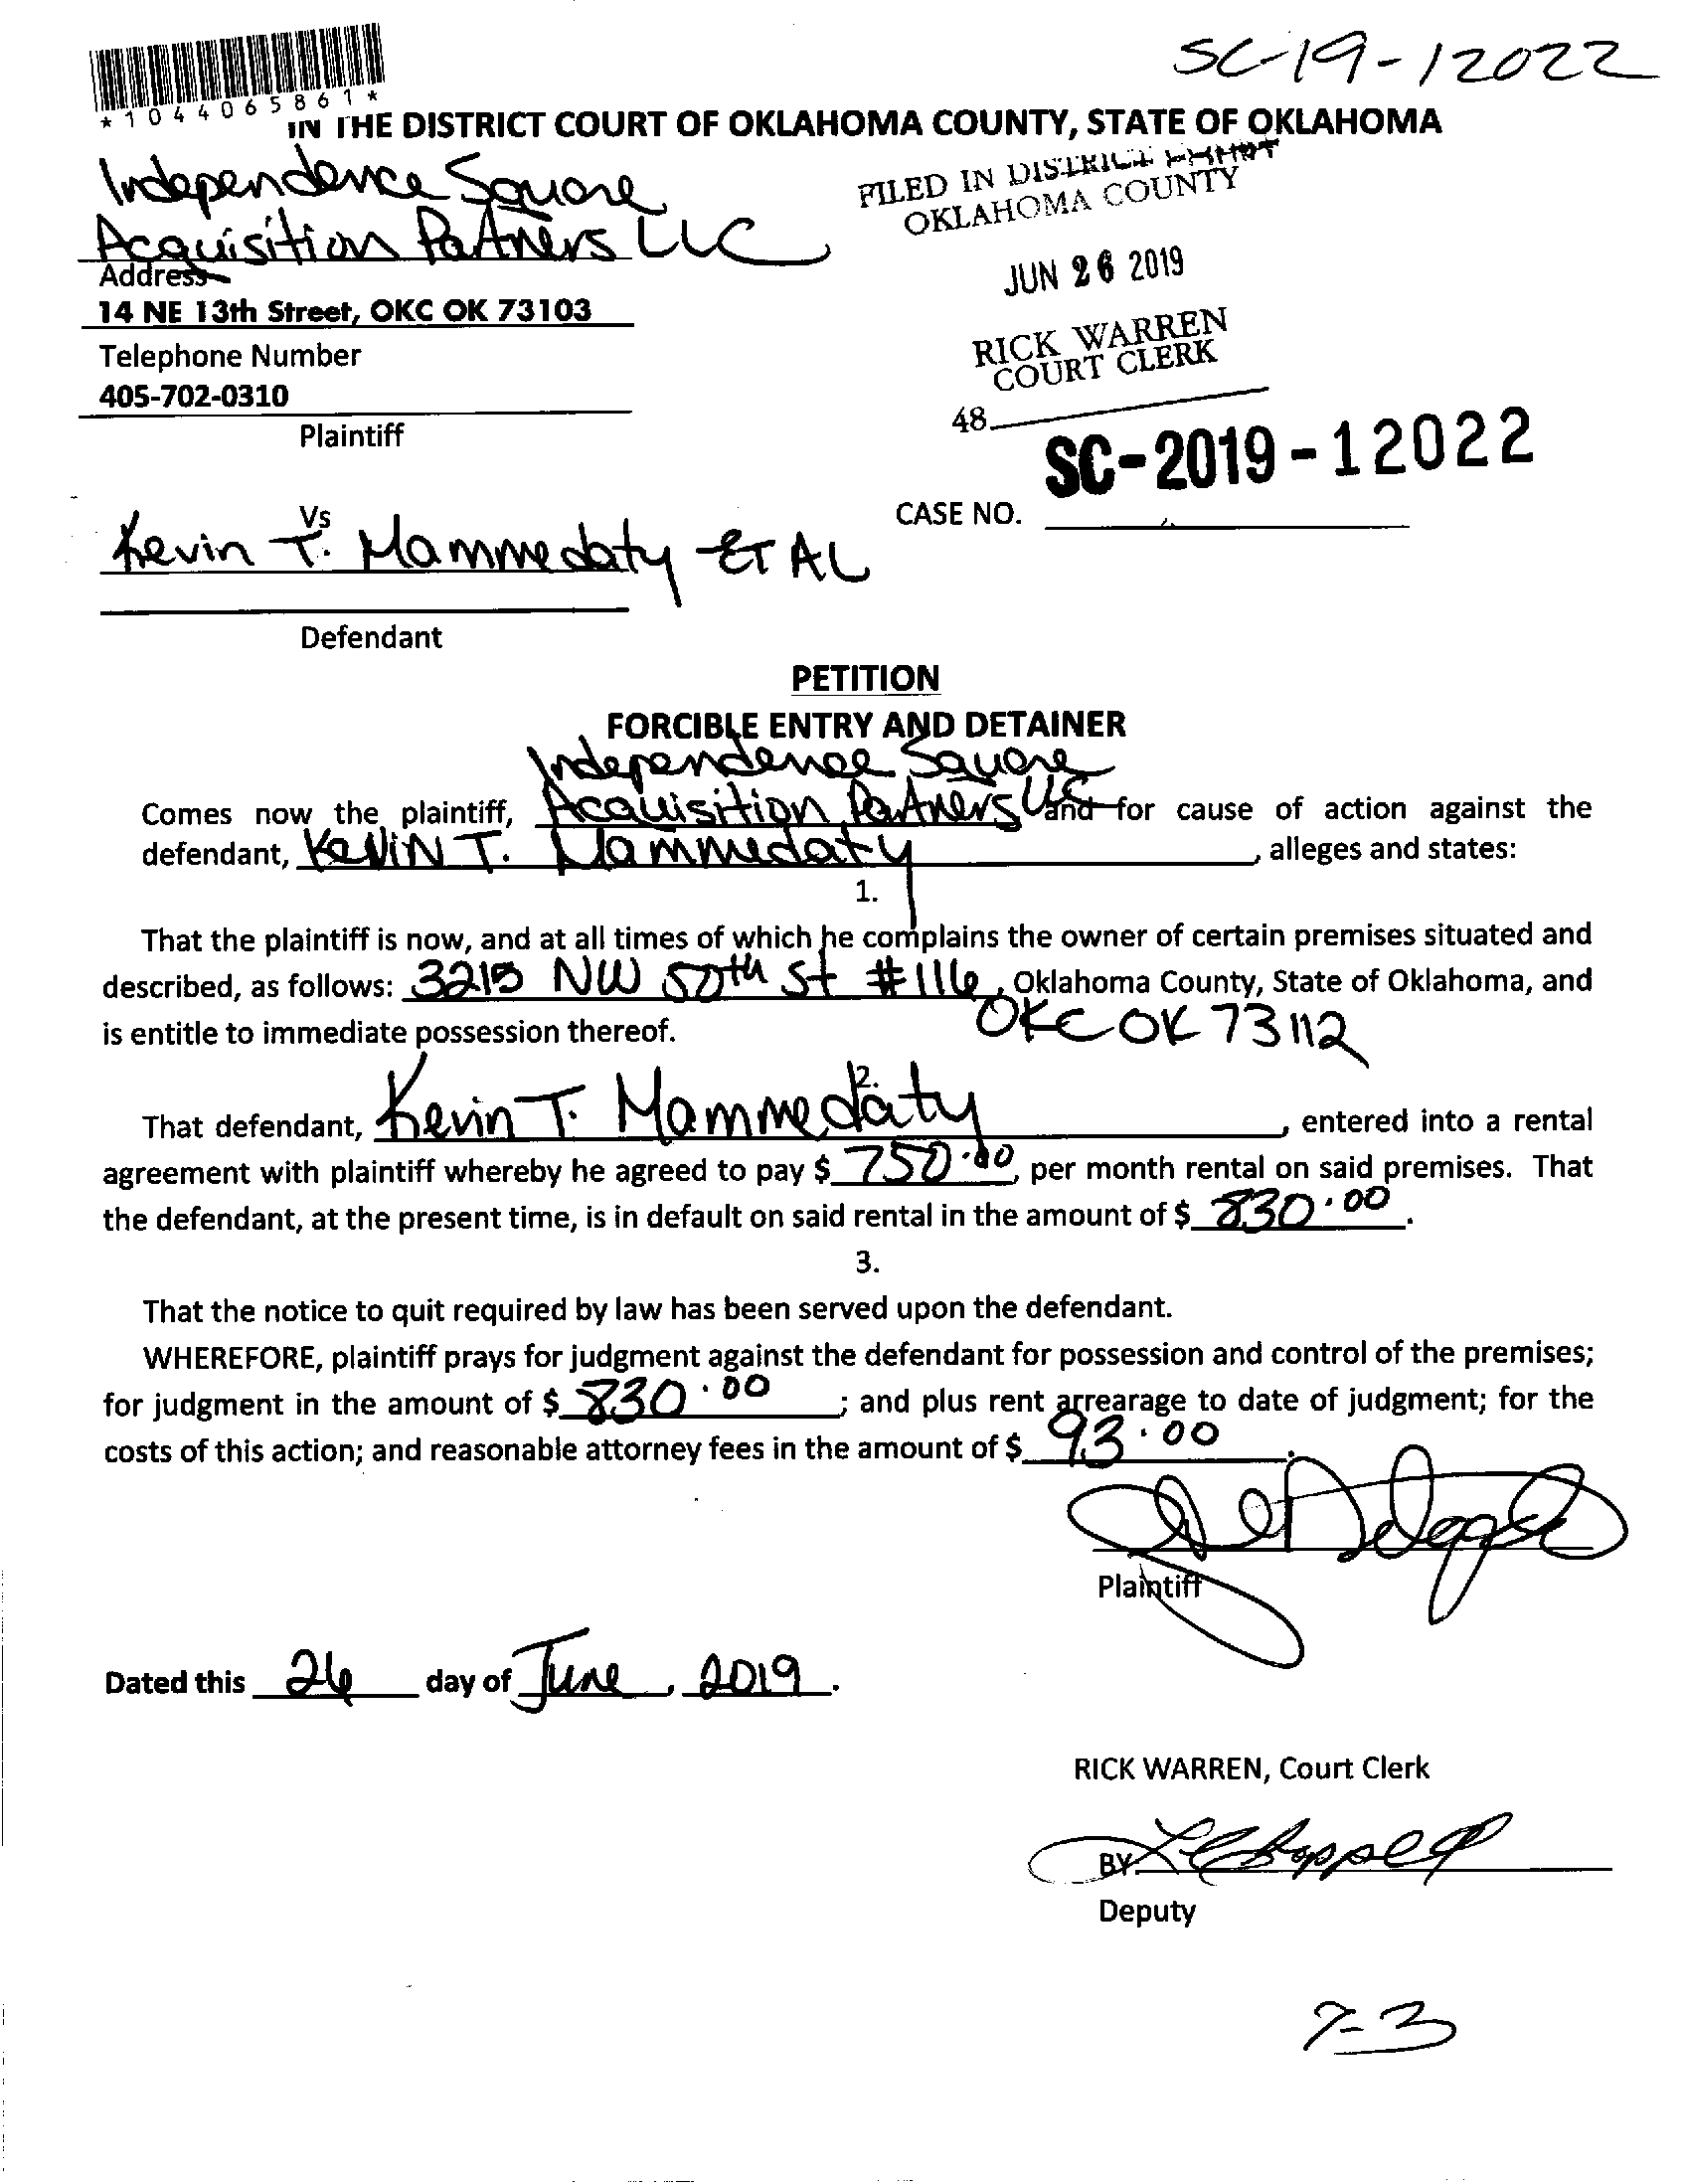 SC-19-12022
*1044065861*
IN THE DISTRICT COURT OF OKLAHOMA COUNTY, STATE OF OKLAHOMA
Independence Square
Acquisition Partners LLC
Address
14 NE 13th Street, OKC OK 73103
Telephone Number
405-702-0310
Plaintiff
FILED IN DISTRICT COURT
OKLAHOMA COUNTY
JUN 26 2019
RICK WARREN
COURT CLERK
48
SC-2019-12022
CASE NO.
Vs
Kevin T. Mammedaty ET AL
Defendant
PETITION
FORCIBLE ENTRY AND DETAINER
Independence Square
Comes now the plaintiff, Acquisition Partners LLC and for cause of action against the
defendant, KEVIN T. Mammedaty, alleges and states:
1.
That the plaintiff is now, and at all times of which he complains the owner of certain premises situated and
described, as follows: 3215 NW 50th St #116, Oklahoma County, State of Oklahoma, and
is entitle to immediate possession thereof. OKC OK 73112
2.
That defendant, Kevin T. Mammedaty, entered into a rental
agreement with plaintiff whereby he agreed to pay $ 750.00, per month rental on said premises. That
the defendant, at the present time, is in default on said rental in the amount of $ 830.00.
3.
That the notice to quit required by law has been served upon the defendant.
WHEREFORE, plaintiff prays for judgment against the defendant for possession and control of the premises;
for judgment in the amount of $ 830.00; and plus rent arrearage to date of judgment; for the
costs of this action; and reasonable attorney fees in the amount of $ 93.00.
Plaintiff
Dated this 26 day of June, 2019.
RICK WARREN, Court Clerk
BY
Deputy
7-3